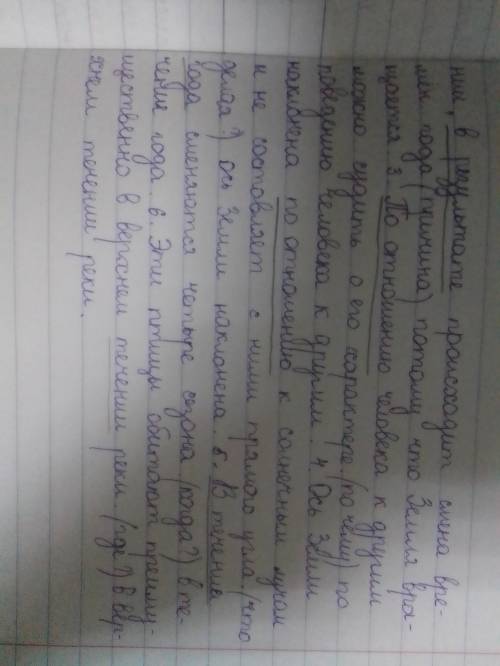 нии, в результате происходит смена вре-
мен года (причина) потому что Земля вра-
щается 3. По отношению человека к другим
можно судить о его характере. (по чему) по
поведению человека к другим. 4 Ось Земли
наклонена по отношению к солнечным лучам
и не составляет с ними прямого угла. (что
делает?) Ось Земли наклонена 5. В течение
года сменяются четыре сезона (когда?) в те-
чение года. 6. Эти птицы обитают преиму-
щественно в верхнем течении реки (где?) в вер-
хнем течении реки.